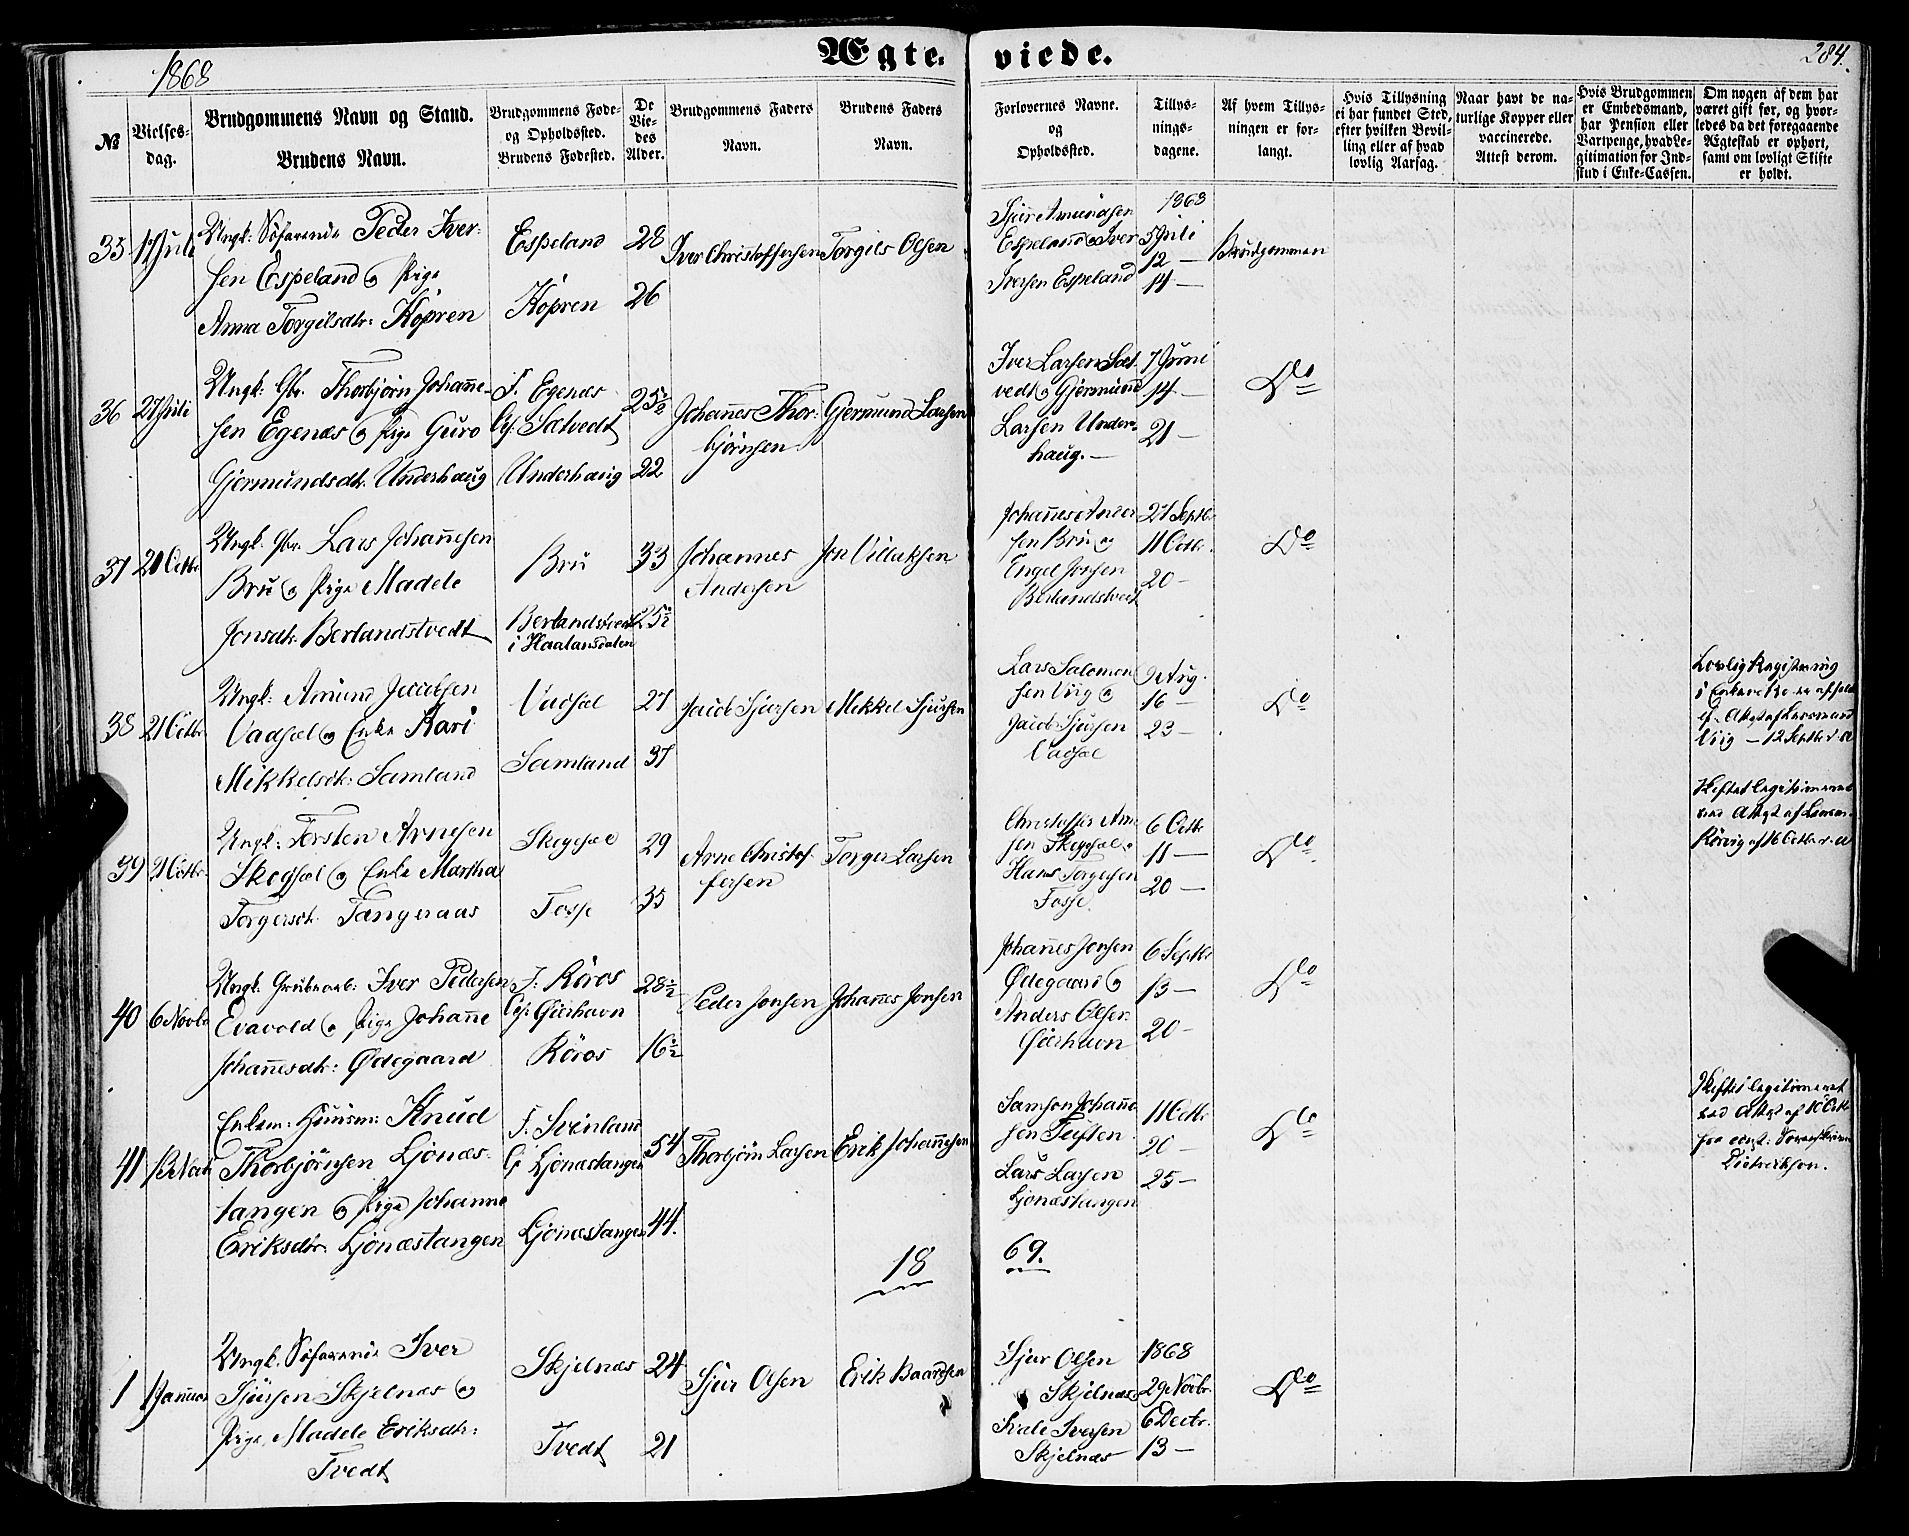 1868
Ægteviede.
284.
№
Vielses-
dag.
Brudgommens Navn og Stand.
Brudens Navn.
Brudgommens Føde-
og Opholdssted.
Brudens Fødested.
De
Vie-
des
Alder.
Brudgommens Faders
Navn.
Brudens Faders
Navn.
Forlovernes Navne.
og
Opholdssted.
Tillys-
nings-
dagene.
Af hvem Tillys-
ningen er for-
langt.
Hvis Tillysning
ei har fundet Sted,
efter hvilken Bevil-
ling eller af hvad
lovlig Aarsag.
Naar havt de na-
turlige Kopper eller
vaccinerede.
Attest derom.
Hvis Brudgommen
er Embedsmand,
har Pension eller
Vartpenge, hvad Le-
gitimation for Ind-
skud i Enke-Cassen.
Om nogen af dem har
været gift før, og hvor-
ledes da det foregaaende
Ægteskab er ophørt,
samt om lovligt Skifte
er holdt.
35
Juli
Ungk: Søfarende Peder Iver-
sen Espeland og Pige
Anna Torgilsdtr: Köpren
Espeland
Köpren
28
26
Iver Christoffersen
Torgils Olsen
Sjur Amundsen
Espeland og Iver
Iversen Espeland
1868
5 Juli
12 —
Brudgommen
36
Juli
Ungk: Gbr. Thorbjørn Johanne-
sen Egenæs og Pige Guro
Gjermundsdtr. Underhaug
F. Egenæs
O: Sætvedt
Underhaug
25½
22
Johannes Thor-
bjørnsen
Gjermund Larsen
Iver Larsen Sæt-
vedt og Gjermund
Larsen Under-
haug. —
7 Juni
14 —
21 —
Do
37
20 Octbr
Ungk. Gbr. Lars Johannesen
Brü og Pige Madele
Jonsdtr. Berlandstvedt
Brü
Berlandstvedt
i Haalansdalen
33
25½
Johannes
Andersen
Jon Villiksen
Johannes Ander-
sen Brü og
Engel Jonsen
Berlandstvedt
27 Septbr.
11 Octbr.
20 —
Do
38
21 Octbr.
Ungk: Amund Jacobsen
Vadsæl og Enke Kari
Mikkelsdtr: Samland
Vadsæl
Samland
27
37
Jacob Sjursen
Mikkel Sjursen
Lars Salomon-
sen Viig og
Jacob Sjursen
Vadsæl
9 Aug.
16 —
23 —
Do
Lovlig Registrering
Viig — 12 Septbr d. A
39
21 Octbr.
Ungk: Torsten Arnesen
Skogsæl og Enke Martha
Torgersdtr. Tangeraas
Skogsæl
Fosse
29
35
Arne Christof-
fersen
Torger Larsen
Christoffer Arne-
sen Skogsæl.
Hans Torgersen
Fosse
6 Octbr
11 —
20 —
Do
Skiftet legitimeret
ved Attest af Lensm.
Rövig af 16 Octbr d. A
40
6 Novbr
Ungk: Grubearb: Iver Pedersen
Evavold og Pige Johanne
Johannesdtr: Ødegaard
F. Röros
O: Gierhavn
Röros
28½
16½
Peder Jonsen
Johannes Jonsen
Johannes Jonsen
Ødegaard og
Anders Olsen
Gierhavn
6 Septbr
13 —
20 —
Do
41
Enkem: Huusm: Knud
Thorbjörnsen Ljonæs-
tangen og Pige Johanne
Eriksdtr. Ljonæstangen
F. Svinland
O: Ljonæstangen
Ljonæstangen
54
44.
Thorbjörn Larsen
Erik Johannesen
Samson Johanne-
sen Teisten
Lars Larsen
Ljonæstangen
11 Octbr
20 —
25 —
Do
Skiftet legitimeret
ved Attest af 10 Octbr
fra const: Sorenskriver
Diderikson.
18
69.
1
1 Januar
Ungk. Søfarende Iver
Sjursen Skjelnæs og
Pige Madele Eriksdtr:
Tvedt
Skjelnæs
Tvedt
24
21
Sjur Olsen
Erik Baardsen
Sjur Olsen
Skjelnæs
Iversen
Skjelnæs
1868
29 Novbr.
6 Decbr.
13 —
Do